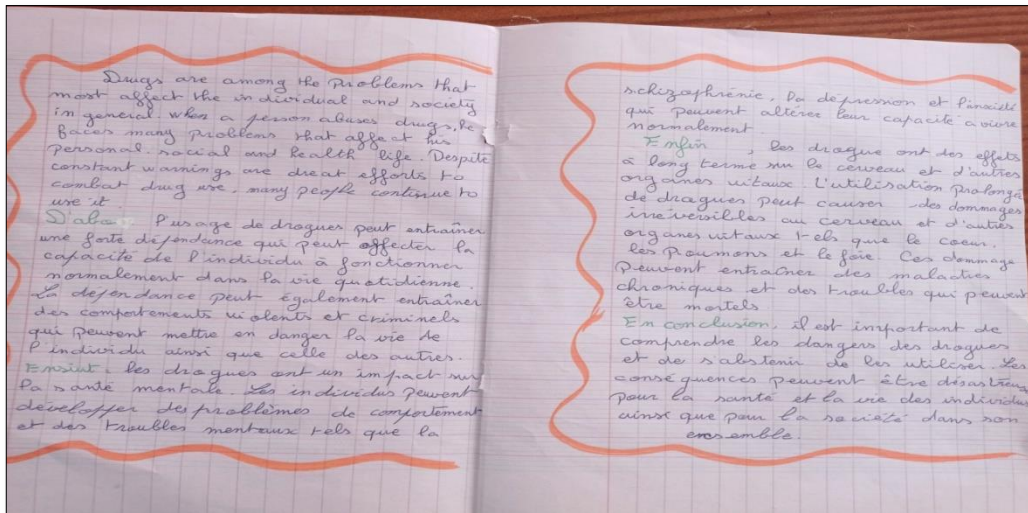 Drugs are among the problems that
most affect the individual and society
in general. when a person abuses drugs, he
faces many problems that affect his
personal. social and health life. Despite
constant warnings are dreat efforts to
combat drug use, many people continue to
use it
D'abo l'usage de drogues peut entraîner
une forte dépendance qui peut affecter la
capacité de l'individu à fonctionner
normalement dans la vie quotidienne.
La dépendance peut également entraîner
des comportements violents et criminels
qui peuvent mettre en danger la vie de
l'individu ainsi que celle des autres.
Ensiut, les drogues ont un impact sur
la santé mentale. Les individus peuvent
développer des problèmes de comportement
et des troubles mentaux tels que la
schizophrénie, la dépression et l'anxiété
qui peuvent altérer leur capacité a vivre
normalement.
Enfin, les drogue ont des effets
à long terme sur le cerveau et d'autres
organes vitaux L'utilisation prolongé
de drogues peut causer des dommages
irréversibles au cerveau et d'autres
organes vitaux tels que le coeur.
les Poumons et le foie. Ces dommage
peuvent entraîner des maladies
chroniques et des troubles qui peuvent
être mortels
En conclusion, il est important de
comprendre les dangers des drogues
et de s'abstenir de les utiliser. Les
conséquences peuvent être désastreus
pour la santé et la vie des individus
ainsi que pour la société dans son
ensemble.